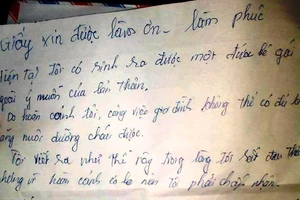 Giấy xin được làm ơn - làm phúc
Hiện tại tôi có sinh ra được một đứa bé gái
ngoài ý muốn của bản thân.
Do hoàn cảnh tôi, công việc gia đình không thể có đủ
nuôi dưỡng cháu được.
Tôi viết ra như thế này trong lòng tôi rất đau
hoàn cảnh nên tôi phải chấp nhận.